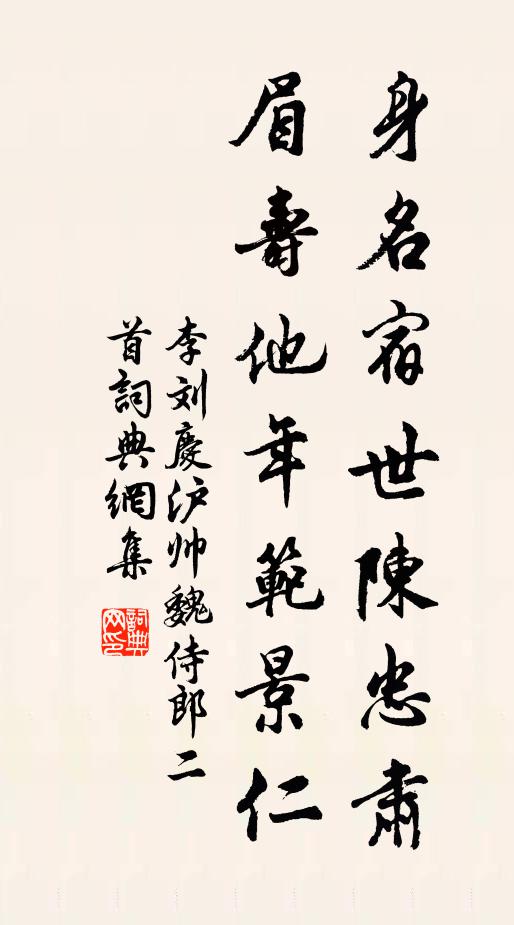 身名宿世陳忠肅
眉壽他年範景仁
李刘慶沪帅魏侍郎二
首詞典網集
詞典
网印